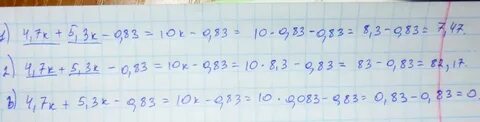 1) 4,7к + 5,3к - 0,83 = 10к - 0,83 = 10 · 0,83 - 0,83 = 8,3 - 0,83 = 7,47.
2) 4,7к + 5,3к - 0,83 = 10к - 0,83 = 10 · 8,3 - 0,83 = 83 - 0,83 = 82,17.
3) 4,7к + 5,3к - 0,83 = 10к - 0,83 = 10 · 0,083 - 0,83 = 0,83 - 0,83 = 0.